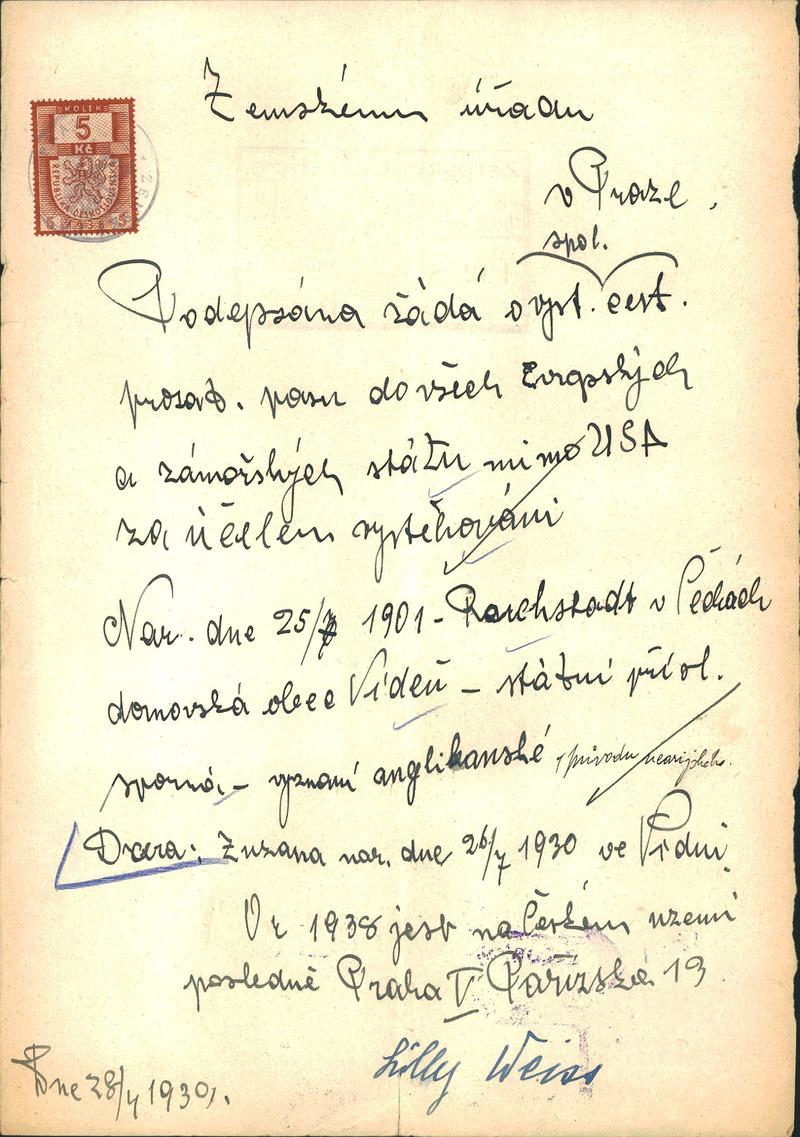 KOLEK
5
Kč
REPUBLIKA ČESKOSLOVENSKÁ
Zemskému úřadu
v Praze.
spol.
Podepsána žádá o vyst. cest.
prozat. pasu do všech Evropských
a zámořských států mimo USA
za účelem vystěhování
Nar. dne 25/ 1901 - Reichstadt v Čechách
domovská obec Vídeň - státní přísl.
sporná, - vyznání anglikanské, původu nearijského.
Dcera: Zuzana nar. dne 26/7 1930 ve Vídni.
Od r 1938 jest na Českém uzemí
posledně Praha V Pařížská 19
Lilly Weiss
Dne 28/4 1939.